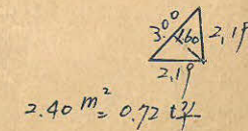 3.00
1.60
2,19
2,19
2.40 m² = 0.72 坪